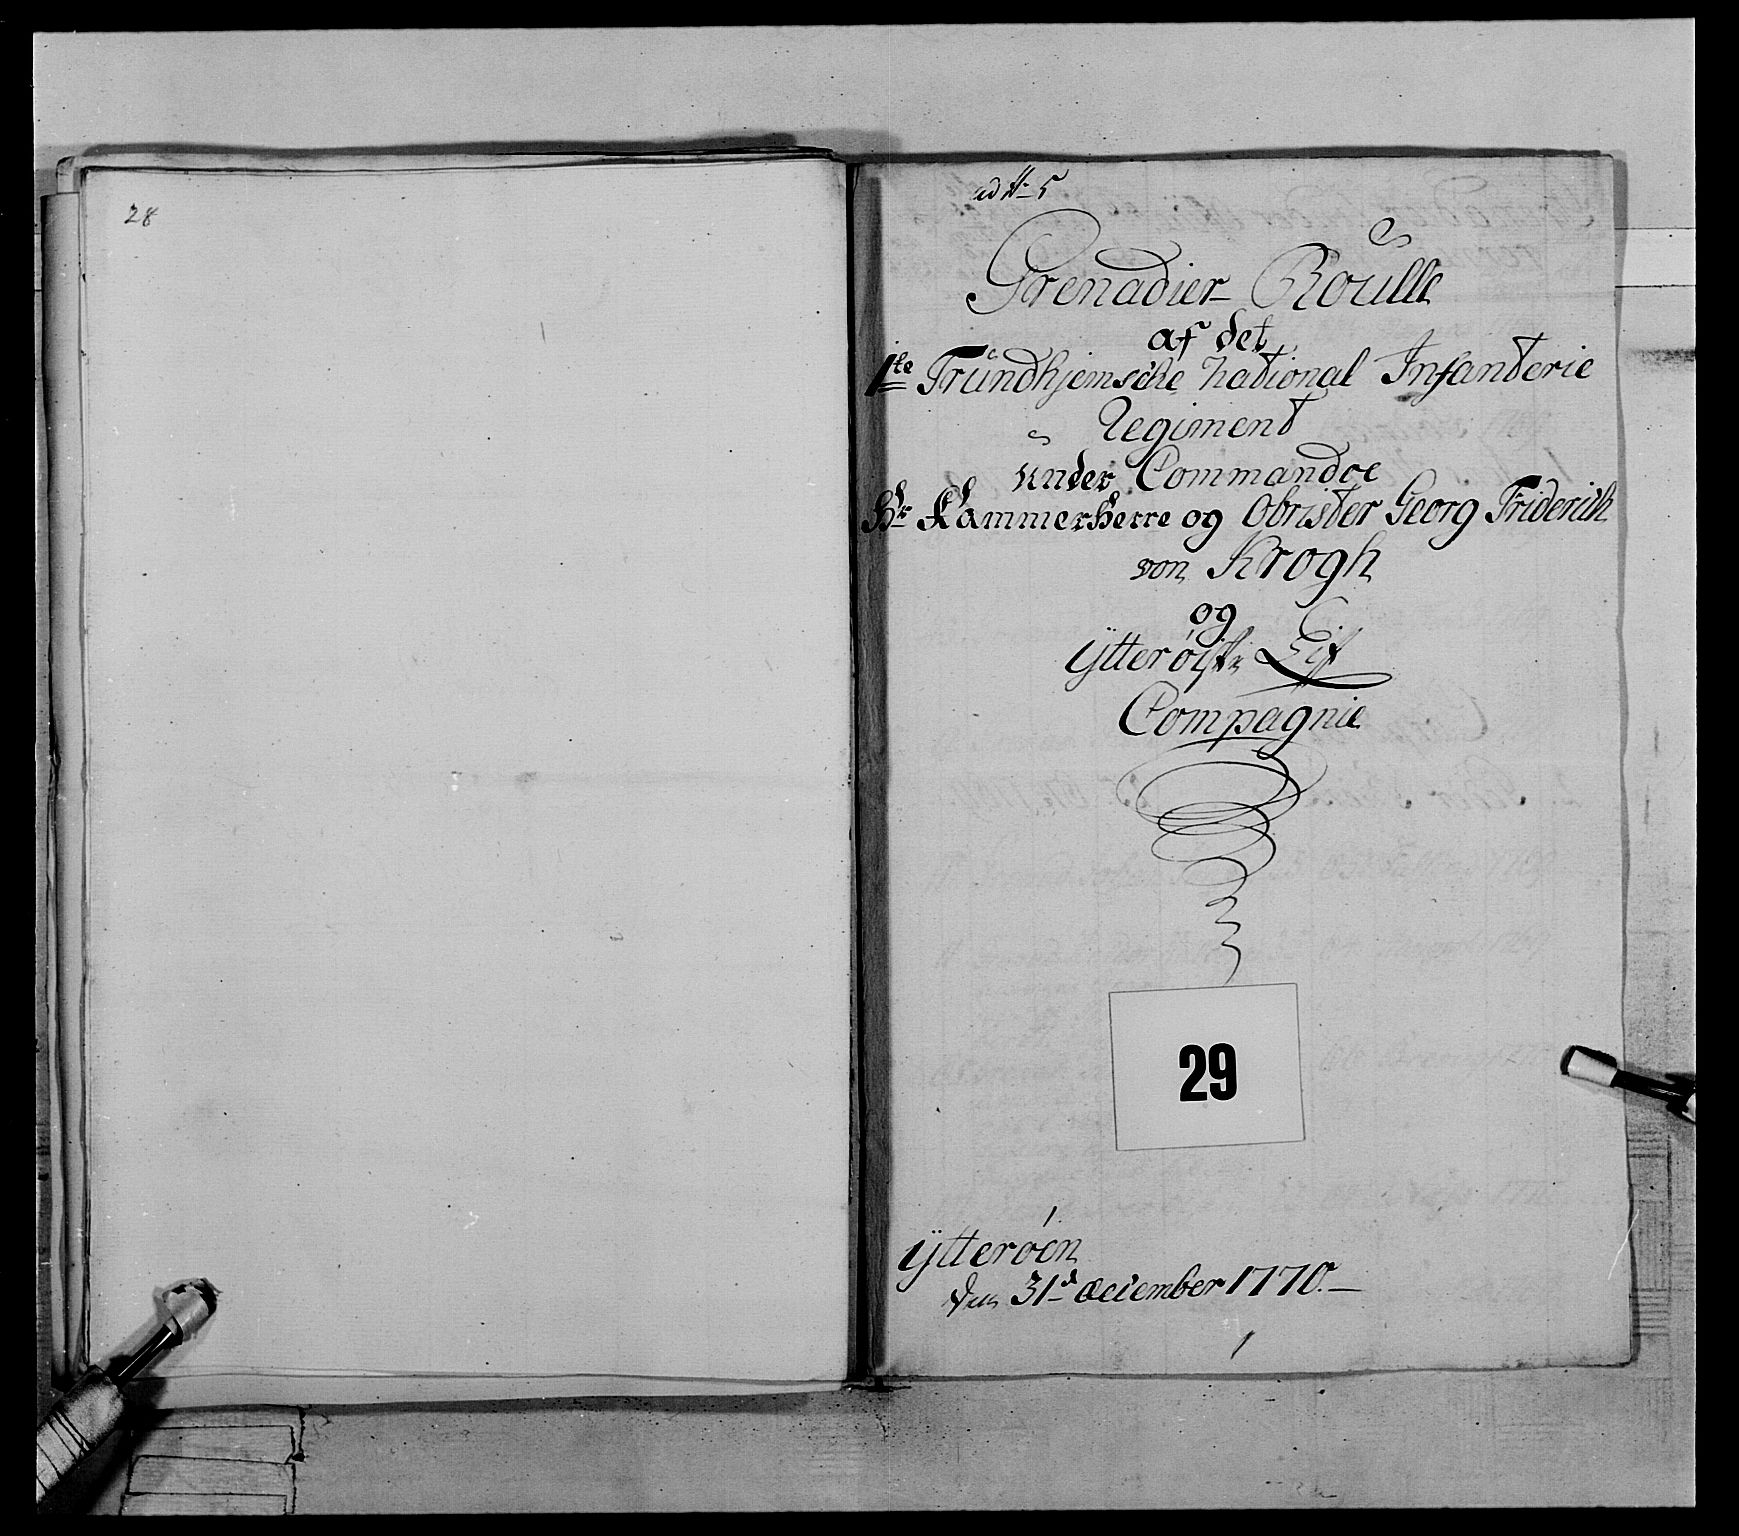 28
ad No 5
Grenadier Roulle
af det
1te Trundhjemsche National Infanterie
Regiment
under Commandoe
Hr Kammerherre og Obrister Georg Friderich
von Krogh
og
Ytterøiske Lif
Compagnie
29
Ytterøen
den 31d December 1770.
1